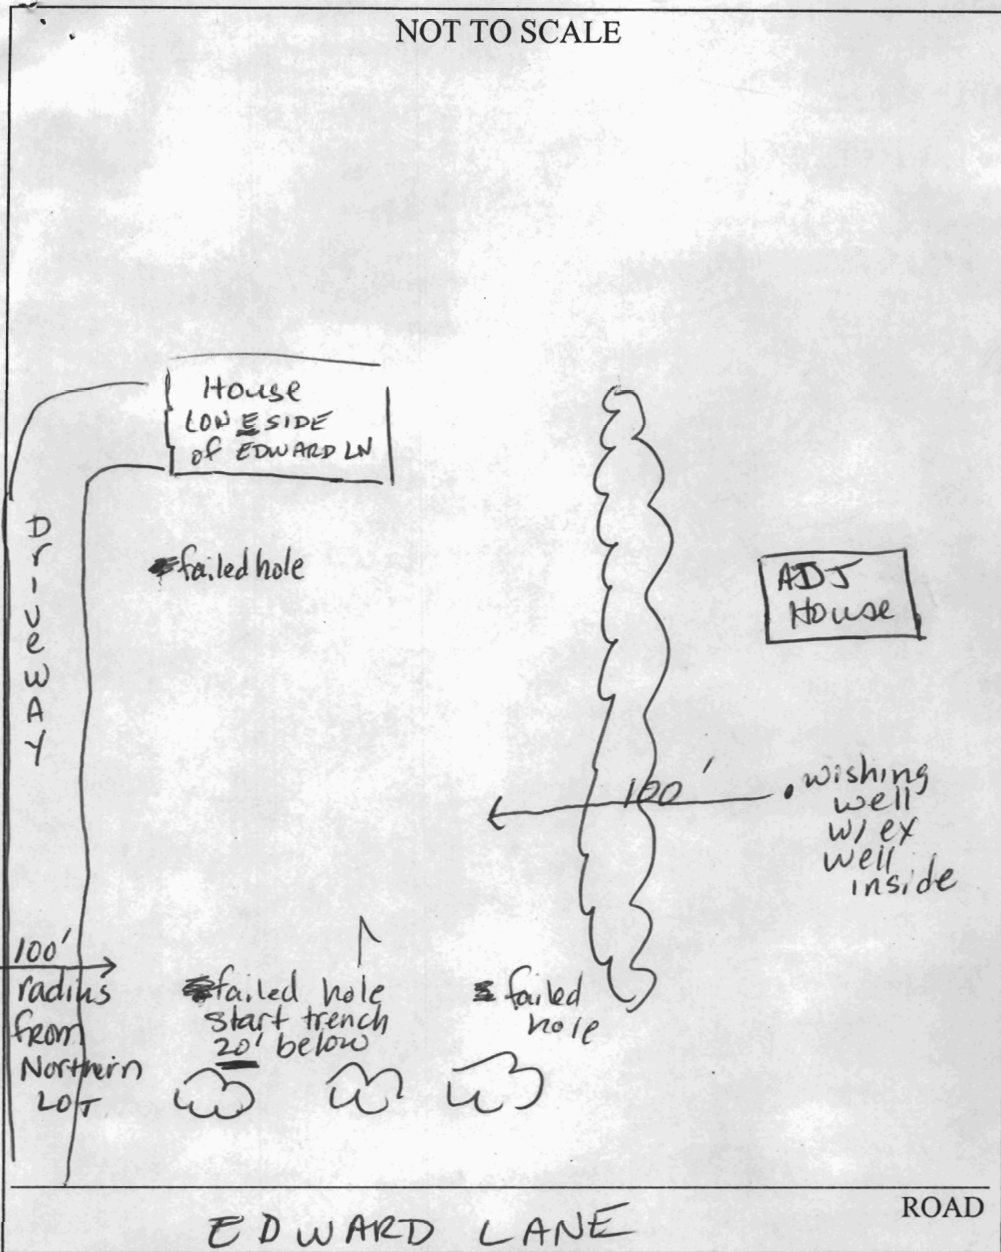 NOT TO SCALE
House
LON E SIDE
of EDWARD LN
DrivewAY
failed hole
ADJ
House
100'
wishing
well
w/ ex
well
inside
100'
radius
from
Northern
LOT
failed hole
start trench
20' below
failed
hole
ROAD
EDWARD LANE